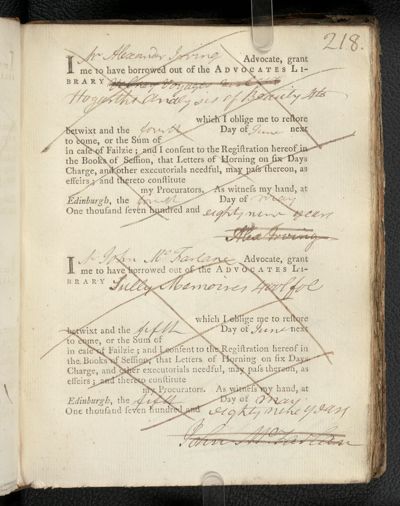 218.
I Mr Alexander Irving Advocate, grant
me to have borrowed out of the ADVOCATES LI-
BRARY
Hogarths Analysis of Beauty 4to
which I oblige me to restore
betwixt and the fourth Day of June next
to come, or the Sum of
in case of Failzie; and I consent to the Registration hereof in
the Books of Session, that Letters of Horning on six Days
Charge, and other executorials needful, may pass thereon, as
effeirs; and thereto constitute
my Procurators. As witness my hand, at
Edinburgh, the fourth Day of May
One thousand seven hundred and eighty nine years
Alex Irving
I Mr John McFarlane Advocate, grant
me to have borrowed out of the ADVOCATES LI-
BRARY Sully Memoires fol
which I oblige me to restore
betwixt and the fifth Day of June next
to come, or the Sum of
in case of Failzie; and I consent to the Registration hereof in
the Books of Session, that Letters of Horning on six Days
Charge, and other executorials needful, may pass thereon, as
effeirs; and thereto constitute
my Procurators. As witness my hand, at
Edinburgh, the fifth Day of May
One thousand seven hundred and eighty nine years
John McFarlane